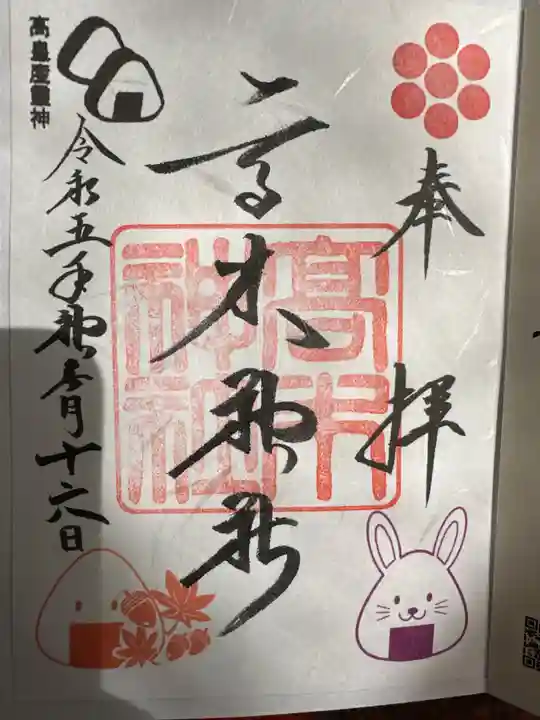 奉拝
高木神社
高木神社
令和五年神無月十六日
高皇産靈神